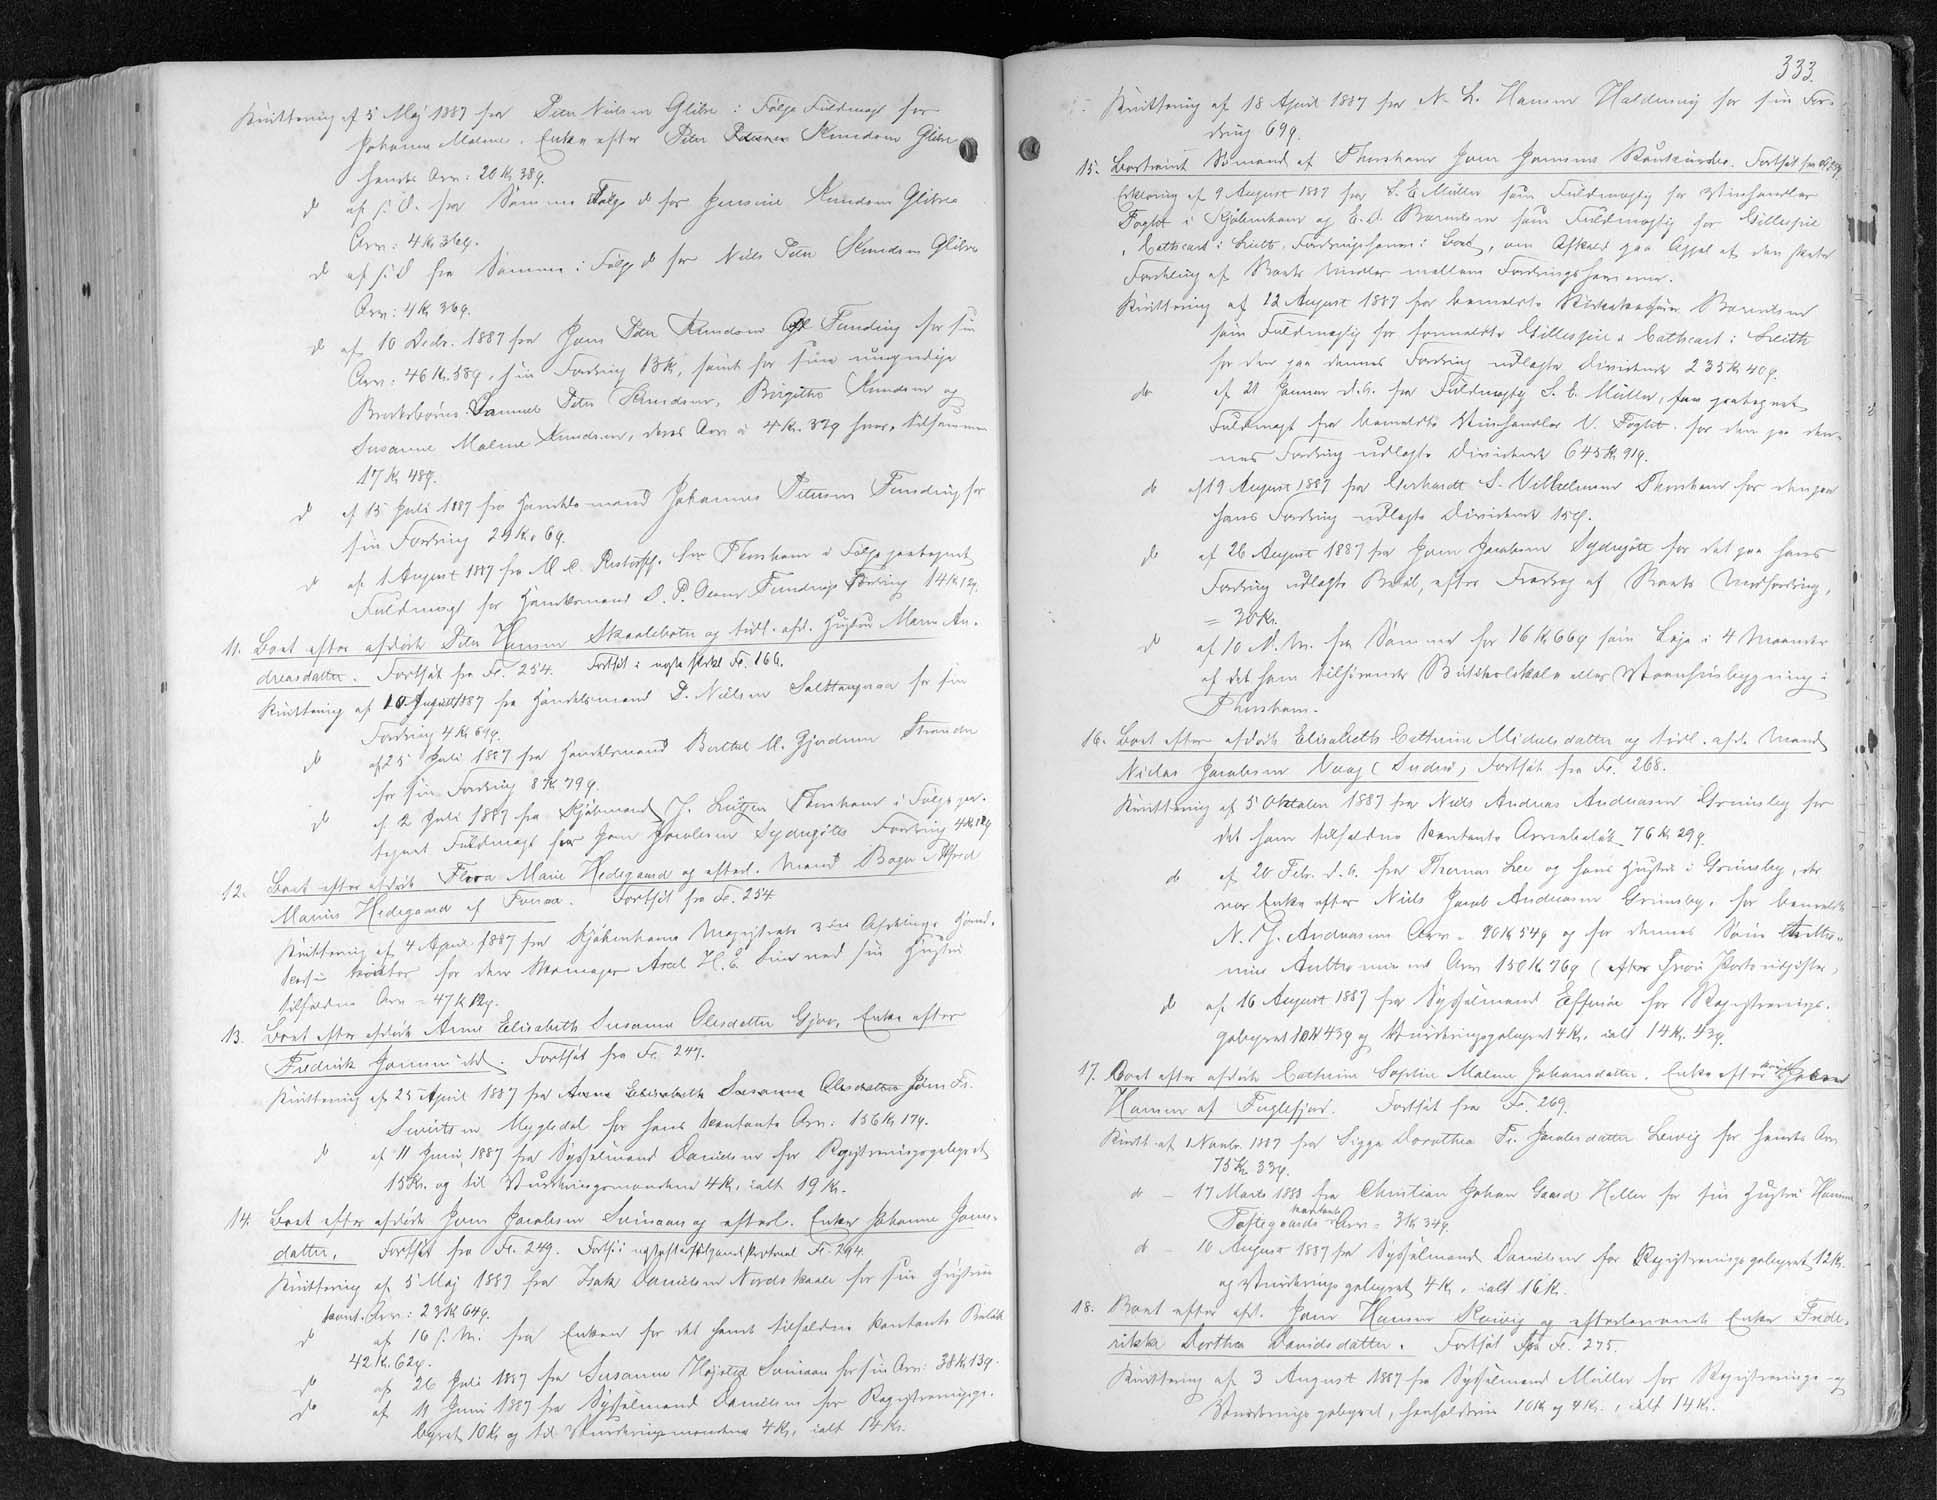 Kvittering af 5 Maj 1887 fra Peter Nielsen Glibre i Følge Fuldmagt for
Johanne Malene, Enke efter Peter Knudsen Glibre
hendes Arv: 20 Kr 38 ø.
d af s. D. fra Samme i Følge d for Jensine Knudsen Glibre
Arv: 4 Kr 36 ø.
d af s. D fra Samme i Følge d for Niels Peter Knudsen Glibre
Arv: 4 Kr 36 ø.
d af 10 Decbr. 1887 fra Jens Peter Knudsen Funding for sin
Arv: 46 Kr. 58 ø, sin Fordring 13 K, samt for sine umyndige
Broderbørn: Samuel Peter Knudsen, Birgithe Knudsen og
Susanne Malene Knudsen, deres Arv à 4 Kr. 37 ø hver, tilsammen
17 Kr 48 ø.
d af 15 Juli 1887 fra Handelsmand Johannes Petersen Funding for
sin Fordring 24 Kr. 6 ø.
d af 1 August 1887 fra M. C. Restorff. for Thorshavn i Følge paategnet
Fuldmagt for Handelsmand D. P. Funding Fordring 14 Kr 12 ø.
11. Boet efter afdøde Peter Hansen Skaalebotn og tidl. afd. Hustru Maren An-
dreasdatter. Fortsat fra Fo. 254. Fortsat i Fo. 166.
Kvittering af 10 August 1887 fra Handelsmand P. Nielsen Salttangeraa for sin
Fordring 4 Kr 61 ø.
d af 25 Juli 1887 fra Handelsmand Berthel M. Gjerdum Strander
for sin Fordring 8 Kr. 79 ø.
d af 2 Juli 1887 fra Kjøbmand J. Lützen Thorshavn i Følge paa-
tegnet Fuldmagt for Joen Jacobsen Sydregøtes Fordring 4 Kr 12 ø
12. Boet efter afdøde Flora Marie Hedegaard og efterl. Mand Bager Alfred
Marius Hedegaard af Fonaa. Fortsat fra Fo. 254
Kvittering af 4 April 1887 fra Kjøbenhavns Magistrats 3die Afdelings Haand-
Kontor for den Axel H. E. med sin Hustru
tilfaldne Arv = 47 Kr 12 ø.
13. Boet efter afdøde Anne Elisabeth Susanne Olesdatter Gjov, Enke efter
Fredrik Joensen ibd. Fortsat fra Fo. 247.
Kvittering af 25 April 1887 fra Anna Elisabeth Susanna Olesdatter Joen Fr.
Sivertsen Mygledal for hans kontante Arv: 156 Kr 17 ø.
d af 11 Juni 1887 fra Sysselmand Danielsen for Registreringsgebyret
15 Kr. og til Vurderingsmændene 4 Kr, ialt 19 Kr.
14. Boet efter afdøde Joen Jacobsen Svinaa og efterl. Enke Johanne Joens-
datter. Fortsat fra Fo. 249. Forts. i Fo. 294.
Kvittering af 5 Maj 1887 fra Isak Danielsen Nordskaale for sin Hustrus
kont. Arv: 23 Kr 64 ø.
d af 16 s. M. fra Enken for det hende tilfaldne kontante Beløb
42 Kr. 62 ø.
d af 26 Juli 1887 fra Susanne Højsted Svinaa for sin Arv: 38 Kr 13 ø.
d af 11 Juni 1887 fra Sysselmand Danielsen for Registreringsge-
byret 10 Kr og til Vurderingsmændene 4 Kr, ialt 14 Kr.
333.
Kvittering af 18 April 1887 fra N. L. Hansen Haldersvig for sin For-
dring 69 ø.
15. Bortrømt Sømand af Thorshavn Joen Joensens Konkursbo. Fortsat fra
Erklæring af 9 August 1887 fra S. E. Müller som Fuldmægtig for Vinhandler
Foght i Kjøbenhavn og E. A. Barentsen som Fuldmægtig for Gillespie
& Cathcart i Leith, Fordringshavere i Boet, om Afkald paa Appel af den skete
Fordeling af Boets Midler mellem Fordringshaverne.
Kvittering af 22 August 1887 fra bemeldte Barentsen
som Fuldmægtig for formeldte Gillespie & Cathcart i Leith
for den paa dennes Fordring udlagte Dividende 235 Kr 40 ø.
do af 21 Januar d. A. fra Fuldmægtig S. E. Müller, paategnet
Fuldmagt fra bemeldte Vinhandler V. Foght for den paa den-
nes Fordring udlagte Dividende 645 Kr 91 ø.
do af 19 August 1887 fra Gerhardt S. Vilhelmsen Thorshavn for den paa
hans Fordring udlagte Dividende 15 ø.
do af 26 August 1887 fra Joen Jacobsen Sydregøte for det paa hans
Fordring udlagte Beløb, efter Fradrag af Boets Modfordring,
= 30 Kr.
d af 10 N. M. fra Samme for 16 Kr 66 ø som Leje i 4 Maaneder
af det ham tilhørende Butikslokale eller Vaaningsbygning i
Thorshavn.
16. Boet efter afdøde Elisabeth Cathrine Michelsdatter og tidl. afd. Mand
Niclas Jacobsen Vaag (Suderø), Fortsat fra Fo. 268.
Kvittering af 5 Oktober 1887 fra Niels Andreas Andreasen Grimsby for
det ham tilfaldne kontante Arvebeløb 76 Kr 29 ø.
do af 20 Febr. d. A. fra Thomas Lee og hans Hustru i Grimsby, der
var Enke efter Niels Jacob Andreasen Grimsby, for bemeldte
N. J. Andreasens Arv = 90 Kr 54 ø og for dennes Søn
Arv 150 Kr 76 ø (efter Portoudgifter)
do af 16 August 1887 fra Sysselmand Effersøe for Registrerings-
gebyret 10 Kr 43 ø og Vurderingsgebyret 4 Kr, ialt 14 Kr. 43 ø.
17. Boet efter afdøde Cathrine Sophie Malene Johansdatter, Enke efter Johan
Hansen af Fuglefjord. Fortsat fra Fo. 269.
Kvitt. af 1 Novbr. 1887 fra Sigga Dorothea Fr. Jacobsdatter Lervig for hendes Arv
75 Kr 33 ø.
do - 17 Marts 1888 fra Christian Johan Gaard Heller for sin Hustru Hanne
Toftegaards kontante Arv = 3 Kr 34 ø.
do - 10 August 1887 fra Sysselmand Danielsen for Registreringsgebyret 12 Kr.
og Vurderingsgebyret 4 Kr, ialt 16 Kr.
18. Boet efter afd. Joen Hansen Reivig og efterlevende Enke Fride-
rikke Dorthea Davidsdatter. Fortsat fra Fo. 275.
Kvittering af 3 August 1887 fra Sysselmand Müller for Registrerings- og
Vurderingsgebyret, henholdsvis 10 Kr og 4 Kr., ialt 14 Kr.